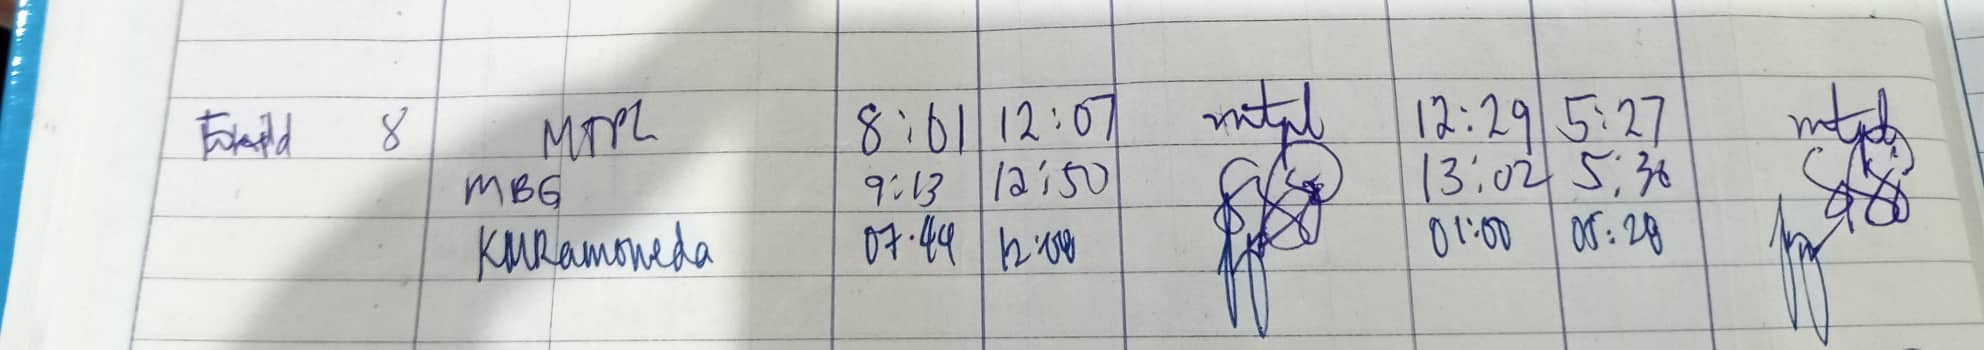 8 MTPL 8:01 12:07 mtpl 12:29 5:27 mtpl
MBG 9:13 12:50 13:02 5:36
KMRamoneda 07:44 12:00 01:00 05:28